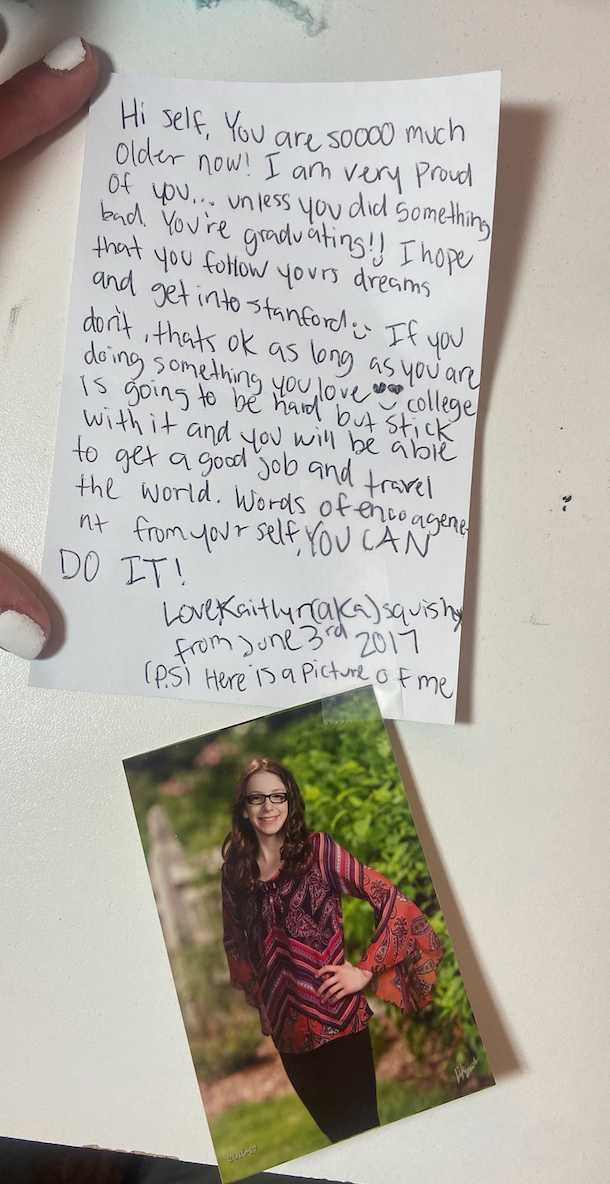 Hi self, You are soooo much
older now! I am very proud
of you... unless you did something
bad. You're graduating!! I hope
that you follow yours dreams
and get into stanford. If you
don't, thats ok as long as you are
doing something you love college
is going to be hard but stick
with it and you will be able
to get a good job and travel
the world. Words of encoagene
nt from your self, YOU CAN
DO IT!
Love Kaitlyn (aka) squishy
from June 3rd 2017
(P.S) Here is a picture of me
2016-17